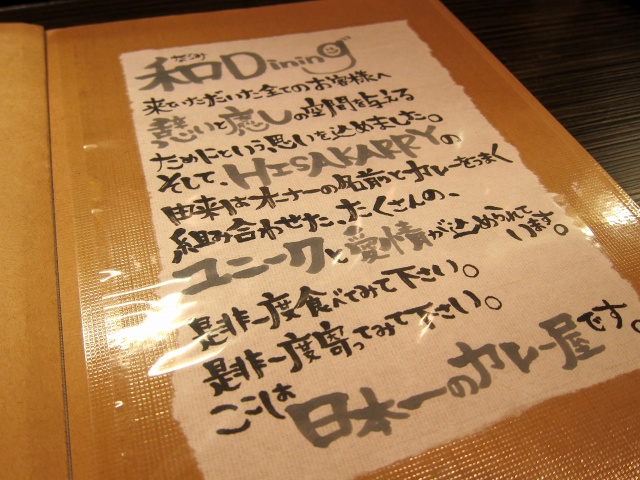 なごみ
和Dining
来ていただいた全てのお客様へ
憩いと癒しの空間を与える
ためにという思いを込めました。
そして、HISAKARRYの
由来はオーナーの名前とカレーをうまく
組み合わせた、たくさんの、
ユニークと愛情が込められて
います。
是非一度食べてみて下さい。
是非一度寄ってみて下さい。
ここは
日本一のカレー屋です。